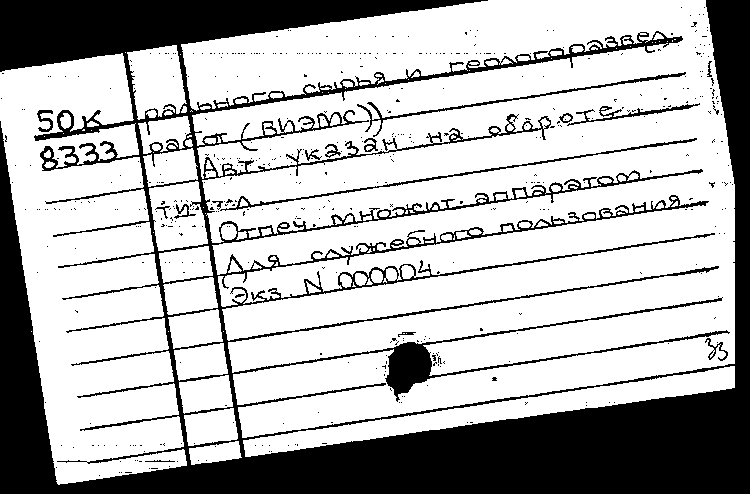 50к рального сырья и геологоразвед.
8333 работ (ВИЭМС)).
Авт. указан на обороте
тит. л.
Отпеч. множит. аппаратом.
Для служебного пользования.
Экз. N 000004.
33